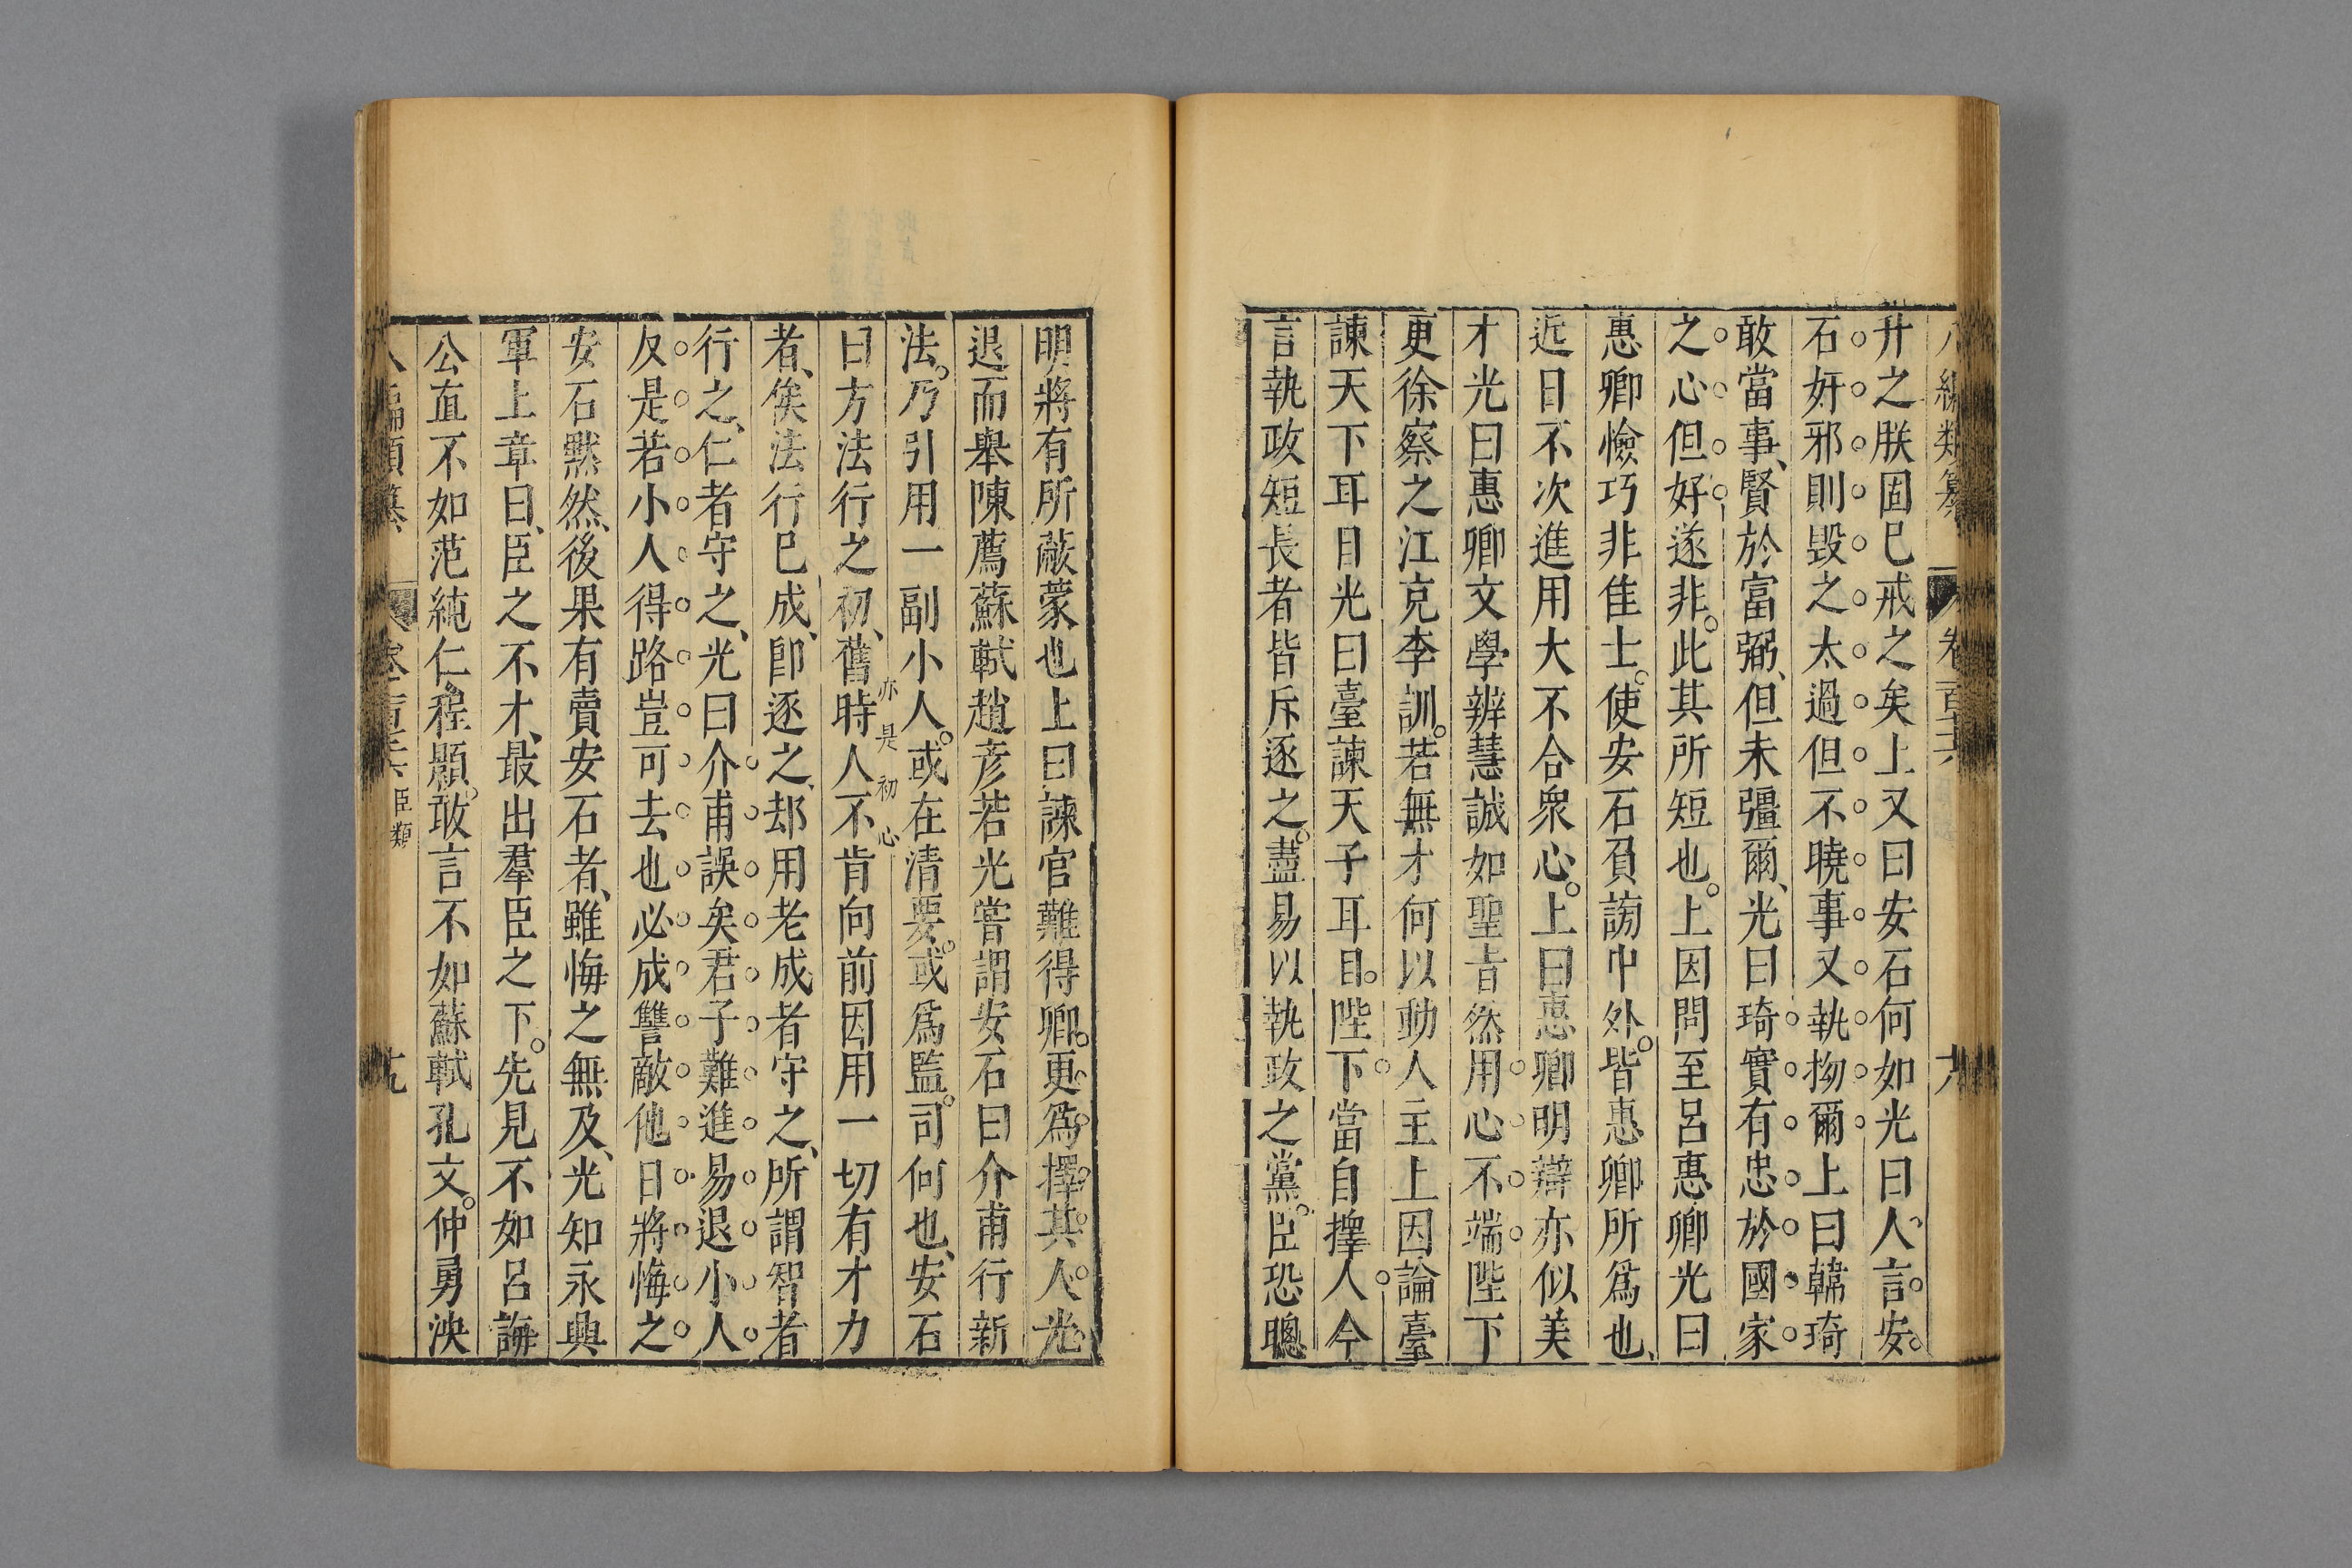 升之朕固已戒之矣上又曰安石何如光曰人言安
石奸邪則毀之太過但不曉事又執拗爾上曰韓琦
敢當事賢於富弼但未彊爾光曰琦實有忠於國家
之心但好遂非此其所短也上因問至呂惠卿光曰
惠卿憸巧非佳士使安石負謗中外皆惠卿所爲也
近日不次進用大不合衆心上曰惠卿明辯亦似美
才光曰惠卿文學辨慧誠如聖旨然用心不端陛下
更徐察之江充李訓若無才何以動人主上因論臺
諫天下耳目光曰臺諫天子耳目陛下當自擇人今
言執政短長者皆斥逐之盡易以執政之黨臣恐聰
明將有所蔽蒙也上曰諫官難得卿更爲擇其人光
退而舉陳薦蘇軾趙彥若光嘗謂安石曰介甫行新
法乃引用一副小人或在清要或爲監司何也安石
曰方法行之初舊時人不肯向前因用一切有才力
亦是初心
者俟法行已成卽逐之却用老成者守之所謂智者
行之仁者守之光曰介甫誤矣君子難進易退小人
反是若小人得路豈可去也必成讐敵他日將悔之
安石默然後果有賣安石者雖悔之無及光知永興
軍上章曰臣之不才最出羣臣之下先見不如呂誨
公直不如范純仁程顥敢言不如蘇軾孔文仲勇決
臣類